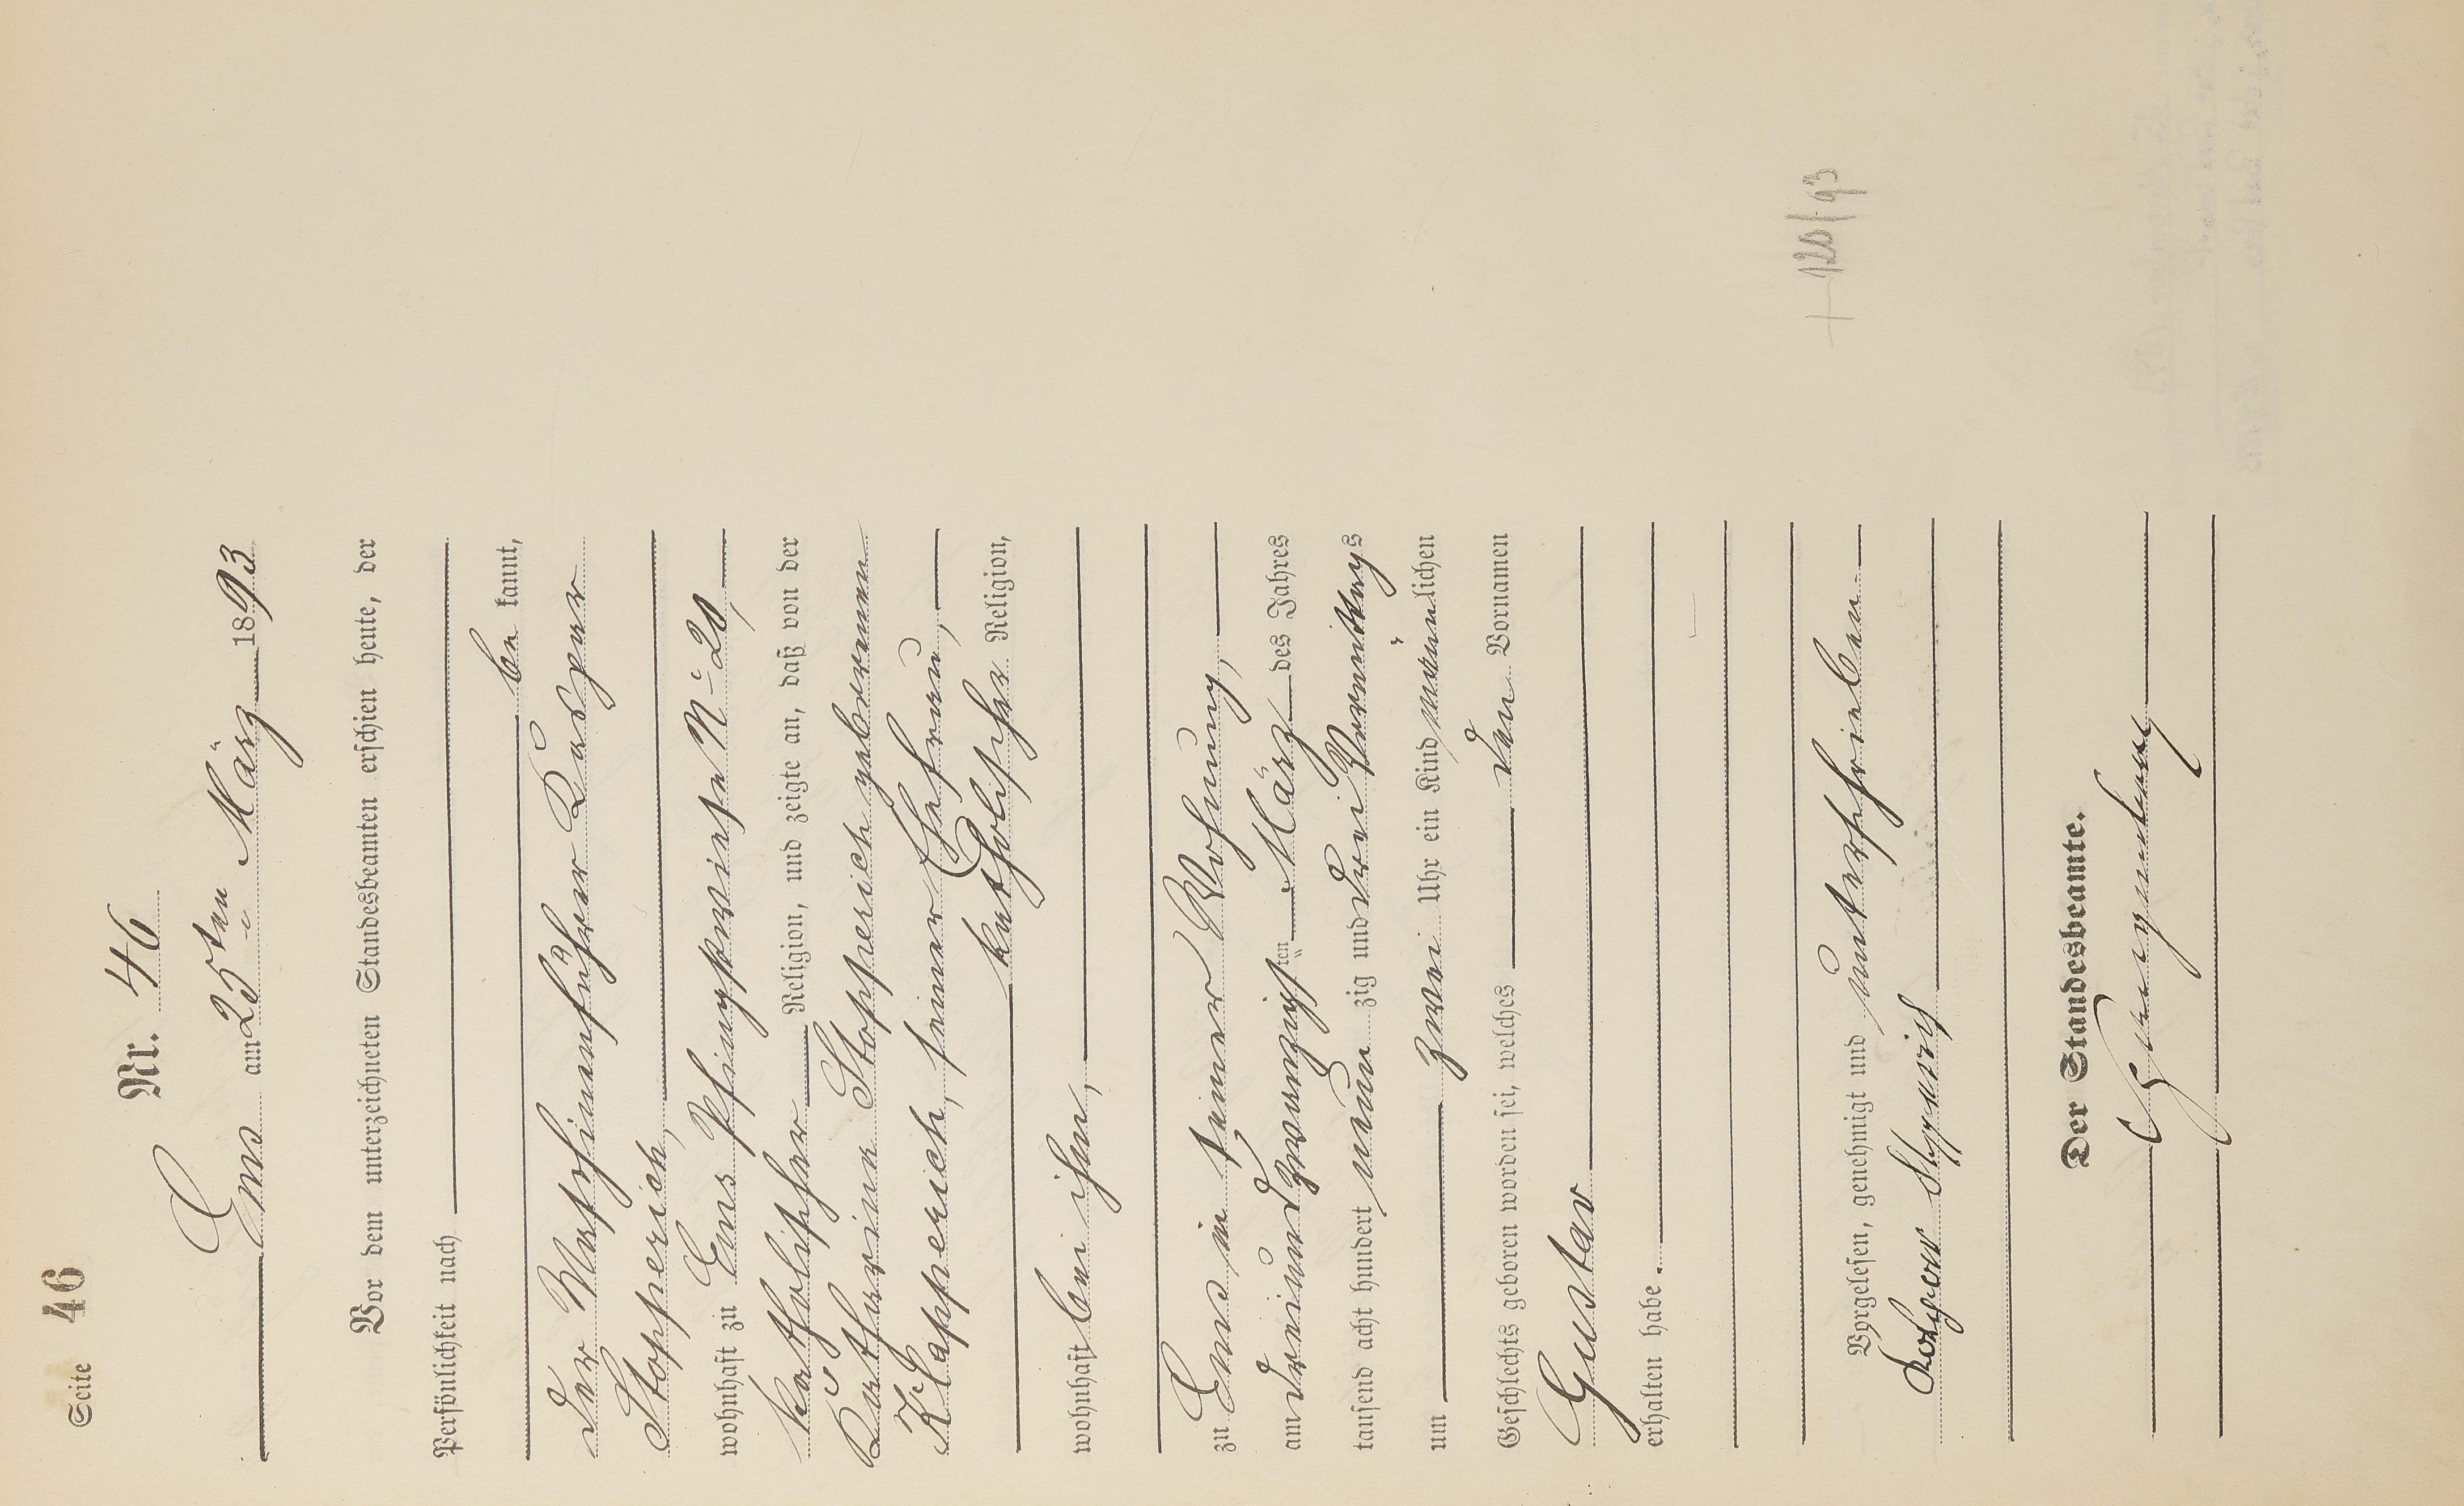 Seite 46
Nr. 46
Ems am 25ten März 1893
Vor dem unterzeichneten Standesbeamten erschien heute, der
Persönlichkeit nach
be kannt,
der Maschinenführer Kasper
Stopperich,
wohnhaft zu Ems Pfingstwiese No 20,
katholischer Religion, und zeigte an, daß von der
Katharina Stopperich geborenen
Klapperich, seiner Ehefrau,
katholischer Religion,
wohnhaft bei ihm,
zu Ems in seiner Wohnung,
am dreiundzwanzigsten März des Jahres
tausend acht hundert neun zig und drei Vormittags
um zwei Uhr ein Kind männlichen
Geschlechts geboren worden sei, welches den Vornamen
Gustav
erhalten habe.
Vorgelesen, genehmigt und unterschrieben
Stopperich
+ 120/93
Der Standesbeamte.